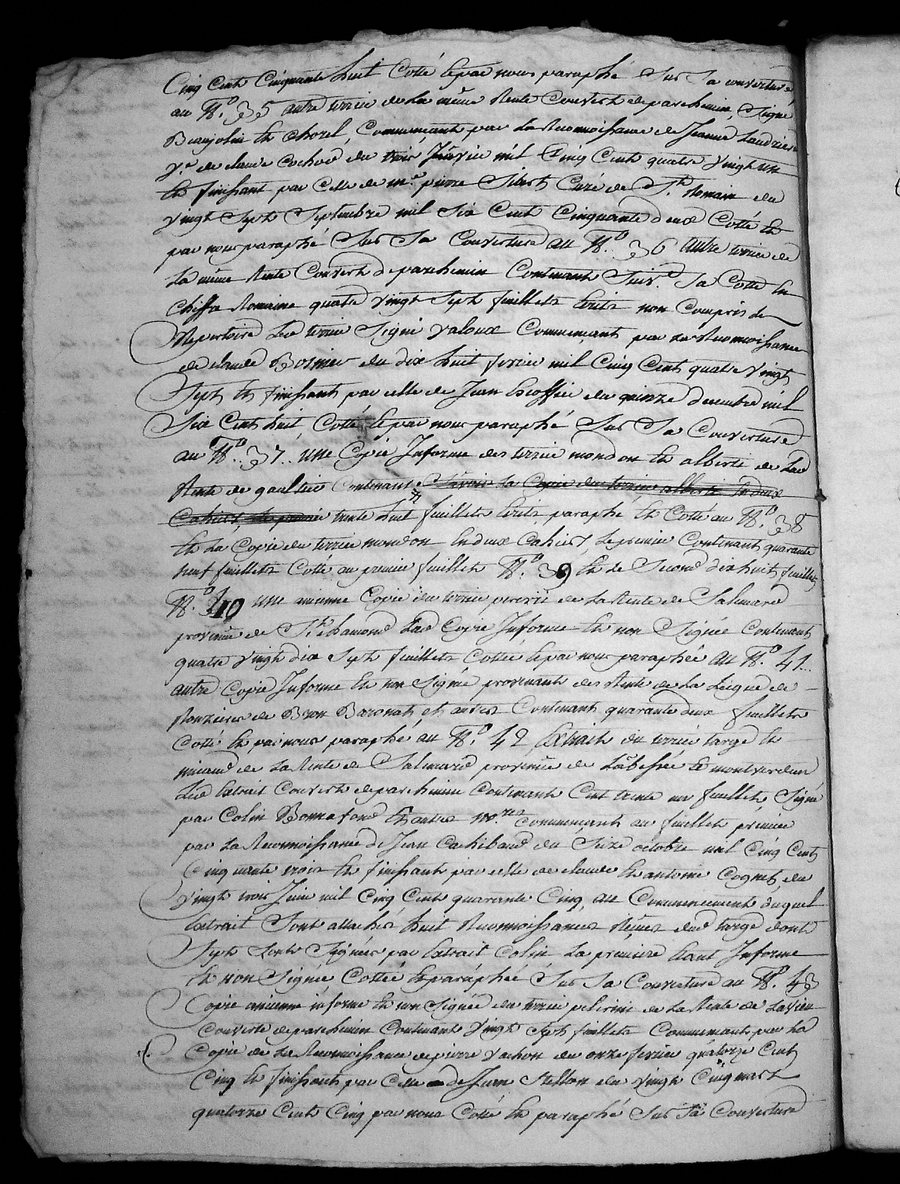 Cinq Cent Cinquante huit Cotté et par nous paraphé Sur Sa couverture
au N.o 35 autre terrier de la même Rente Couvert de parchemin, Signé
Beaujolin et Chorel, Commençant par La Reconnoissance de Jeanne
V.e de claude du trois Janvier mil Cinq Cent quatre Vingt un
et finissant par Celle de m.re pierre Curé de S.t Romain du
Vingt Sept Septembre mil Six Cent Cinquante deux Cotté et
par nous paraphé Sur Sa Couverture au N.o 36 autre terrier de
La même Rente Couvert de parchemin Contenant Suiv.t Sa Cotte en
Chiffre Romaine quatre Vingt Sept feuillets Ecrits non Compris le
Repertoire Led terrier Signé Valoux Commençant par La Reconnoissance
de claude du dix huit fevrier mil Cinq Cent quatre Vingt
Sept et finissant par celle de Jean du quinze decembre mil
Six Cent huit Cotté et par nous paraphé Sur Sa Couverture
au N.o 37. une Copie Informe des terrier mondon et alberti de Lad
Rente de gaultier Contenant Savoir La Copie du terrier alberti
Cahiers trente huit feuillets Ecrits, paraphé et Cotté au N.o 38
et La Copie du terrier mondon En deux Cahiers, Le premier Contenant quarante
huit feuillets Cotté au premier feuillet N.o 39 et le Second dix huit feuillets
N.o 40 une ancienne Copie du terrier de La Rente de Salmard
provenüe de S.t chamond Lad Copie Informe et non Signée Contenant
quatre Vingt dix Sept feuillets Cottée et par nous paraphée au N.o 41.
autre Copie Informe et non Signée provenant des Rente de La Liegue de
Ronzieres de Bron Baronat, et autres Contenant quarante deux feuillets
Cotté et par nous paraphé au N.o 42 Extrait du terrier targe et
de La Rente de Salmard provenüe de Labessee et montverdun
Led Extrait Couvert de parchemin Contenant Cent trente un feuillets Signé
par Colin Bonnafond et autres No.res Commençant au feuillet premier
par La Reconnoissance de Jean du Seize octobre mil Cinq Cent
Cinquante trois et finissant par celle de claude et antoine Cognet du
Vingt trois Juin mil Cinq Cent quarante Cinq, au Commencement duquel
Extrait Sont attachés huit Reconnoissances Reçues dud targe dont
Sept Sont Signées par Extrait Colin La premiere Etant Informe
et non Signée Cottée et paraphée Sur Sa Couverture au N.o 43
Copie ancienne informe et non Signée du terrier pelerin de La Rente de
Couverte de parchemin Contenant Vingt Sept feuillets Commençant par La
Copie de La Reconnoissance de pierre Vachon du onze fevrier quatorze Cent
Cinq et finissant par Celle de Jean du Vingt Cinq mars
quatorze Cent Cinq par nous Cotté et paraphé Sur Sa Couverture